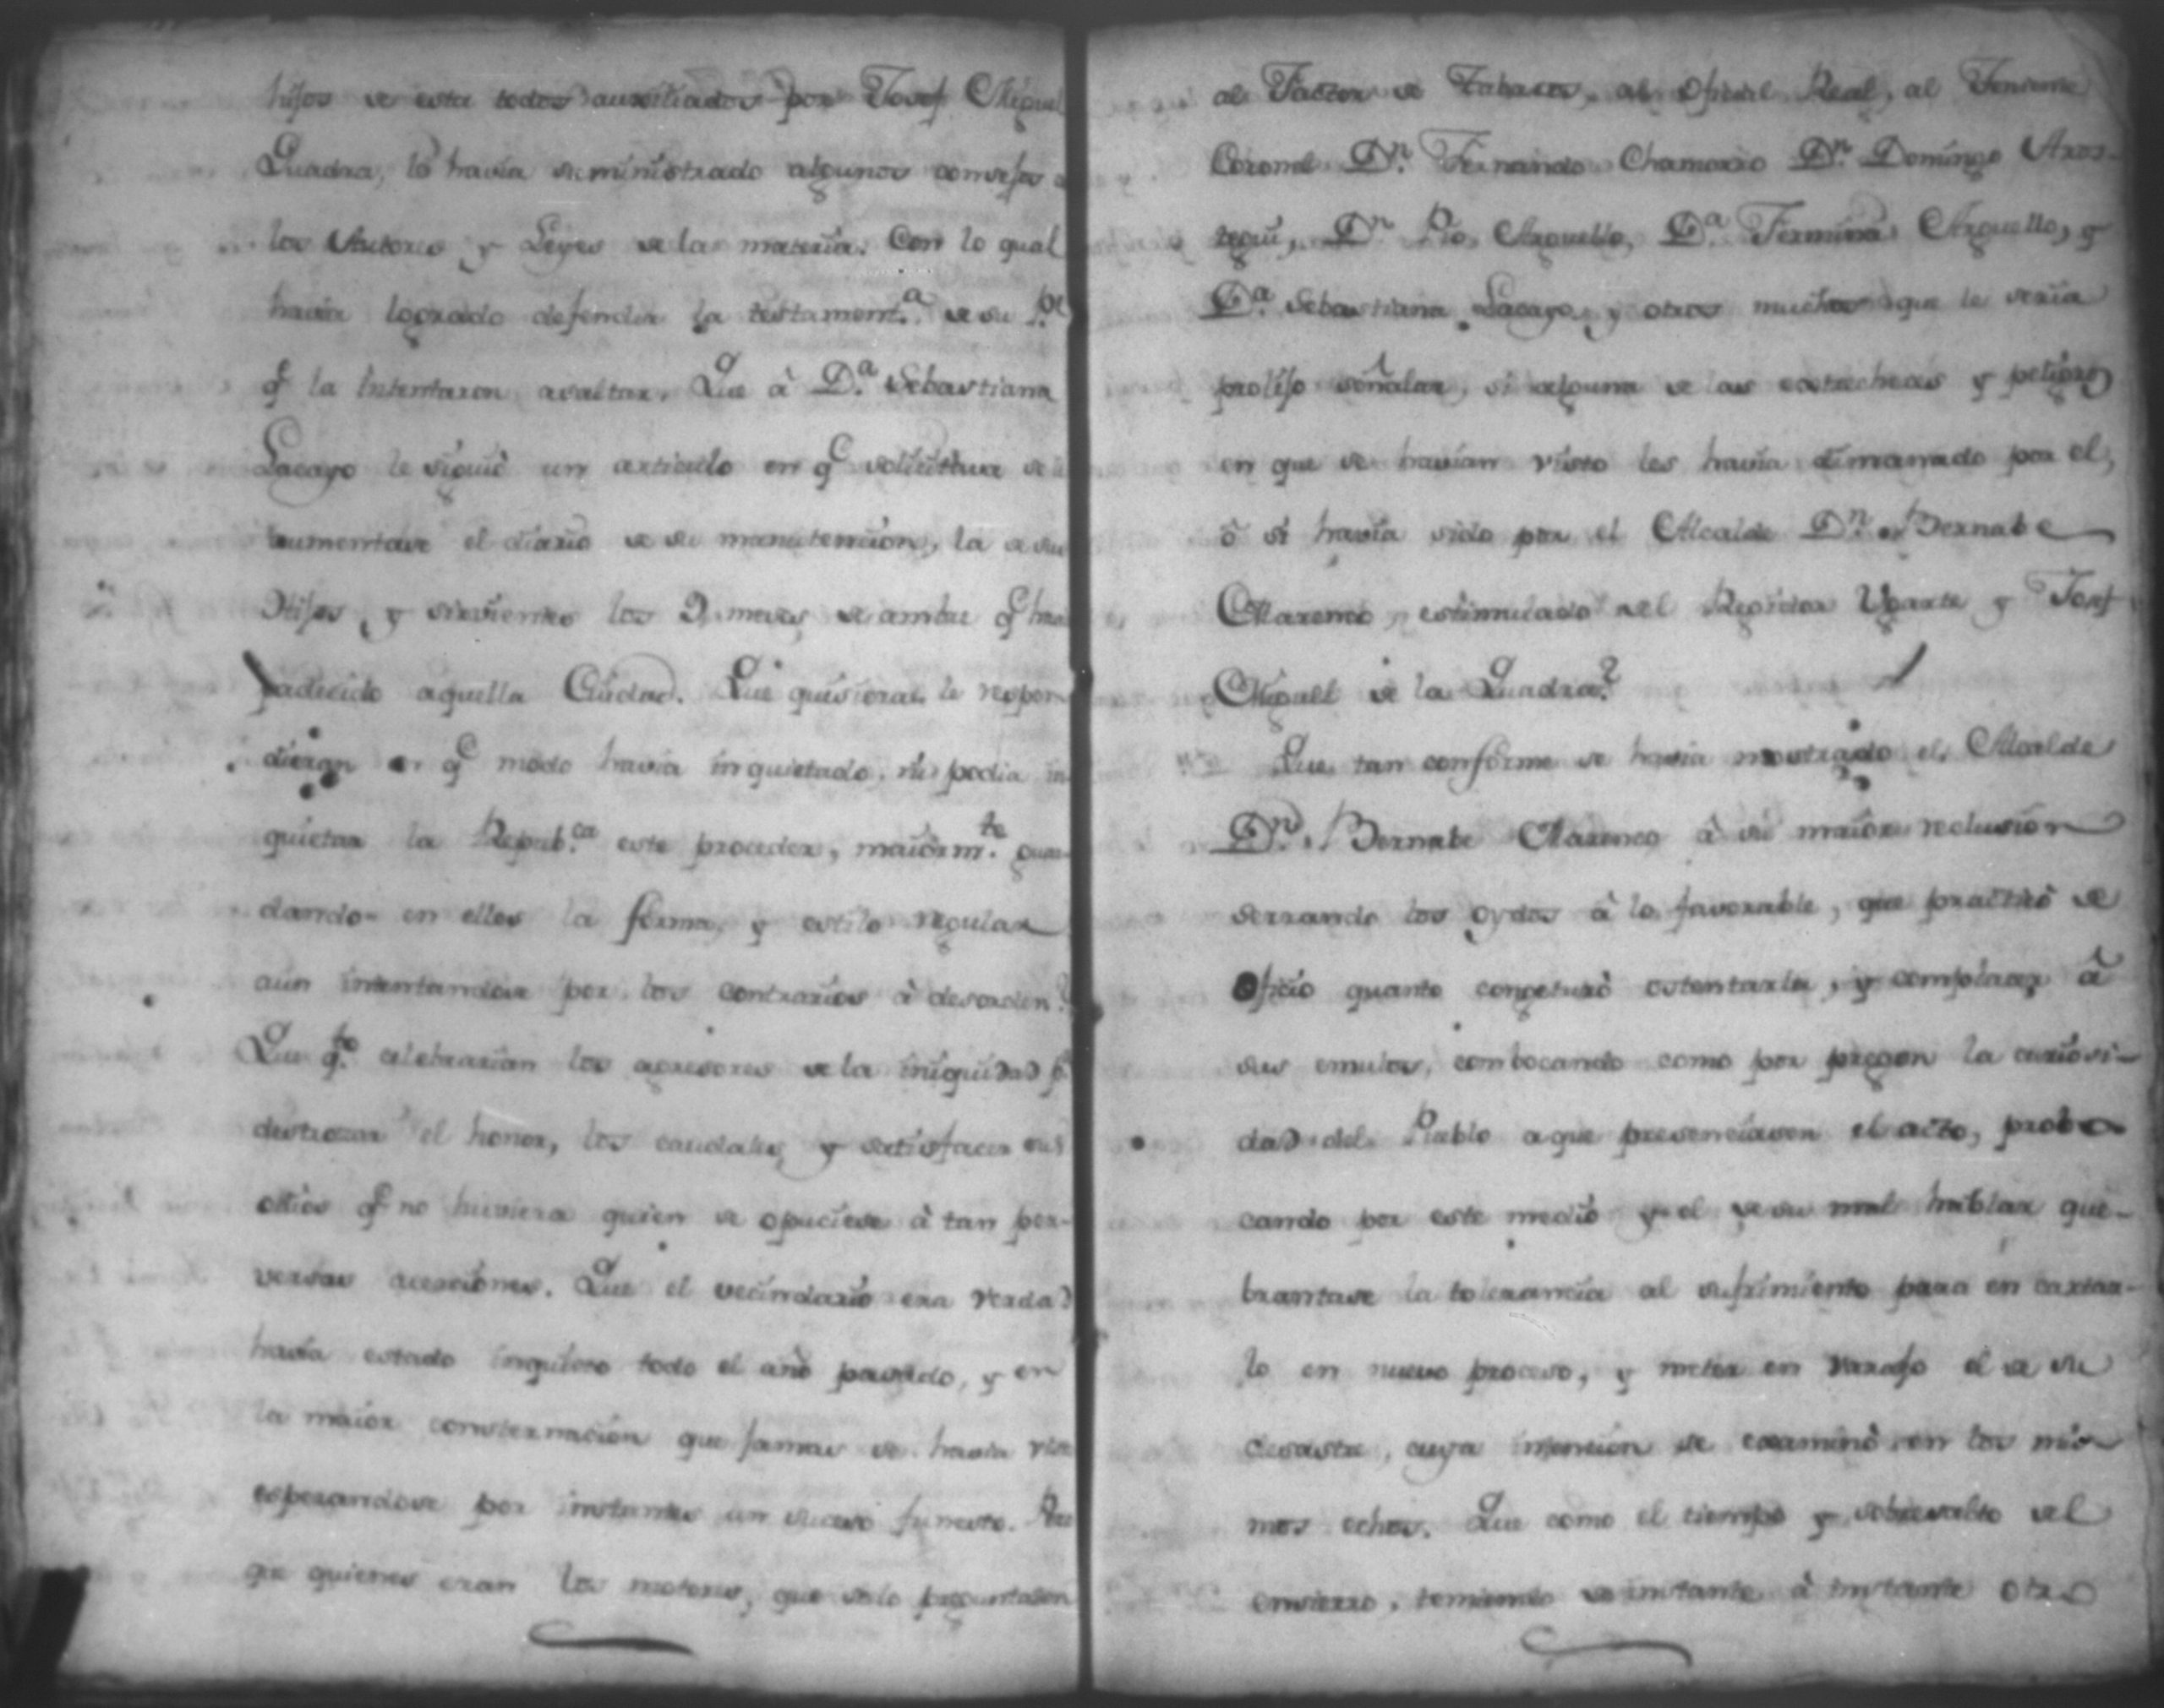 hijos de esta todos auxiliados por Josef Miguel
Quadra, lo havia suministrado algunos consejos a
los Autores y Leyes de la materia. Con lo qual
havia logrado defender la testament.ª de su P.e
q.e la intentaron asaltar. Que â D.ª Sebastiana
Lacayo le siguiò un articulo en q.e solicitava se le
aumentase el diario de su manutencion, la de sus
Hijos, y sirvientes los 9 meses de ambre q.e havia
padecido aquella Ciudad. Que quisieran le respon-
dieran en q.e modo havia inquietado, ni podia in-
quietar la Repub.ca este proceder, maiorm.te guar-
dando en ellos la forma, y estilo regular
aun intentandose por los contrarios à desorden?
Que q.to celebrarian los agresores de la iniquidad p.ª
destrozar el honor, los caudales, y satisfacer sus
odios q.e no huviera quien se opuciese à tan per-
versas acciones. Que el vecindario era verdad
havia estado inquieto todo el año pasado, y en
la maior consternacion que jamas se havia visto
esperandose por instantes un suceso funesto.
que quienes eran los motores, que solo preguntasen
al Factor de Tabacos, al Oficial Real, al Teniente
Coronel D.n Fernando Chamorro D.n Domingo Aros-
tegui, D.n Pio Arguello, D.ª Fermina Arguello, y
D.ª Sebastiana Lacayo, y otros muchos que le seria
prolijo señalar, si alguna de las estrecheces y peligros
en que se havian visto les havia dimanado por el,
ò si havia sido por el Alcalde D.n Bernabe
Marenco, estimulado del Regidor Ugarte y Josef
Miguel de la Quadra?
Que tan conforme se havia mostrado el Alcalde
D.n Bernabe Marenco â su maior reclusion
serrando los oydos â lo favorable, que practicò de
oficio quanto congeturò ostentarla, y complacer â
sus emulos, combocando como por pregon la curiosi-
dad del Pueblo a que presenciasen el acto, probo
cando por este medio y el de su mal hablar que-
brantase la tolerancia al sufrimiento para en cartar-
lo en nuevo proceso, y meter en varajo el de su
desastre, cuya intencion se examinò en los mis-
mos echos. Que como el tiempo y sobresalto del
encierro, temiendo de instante â instante otro